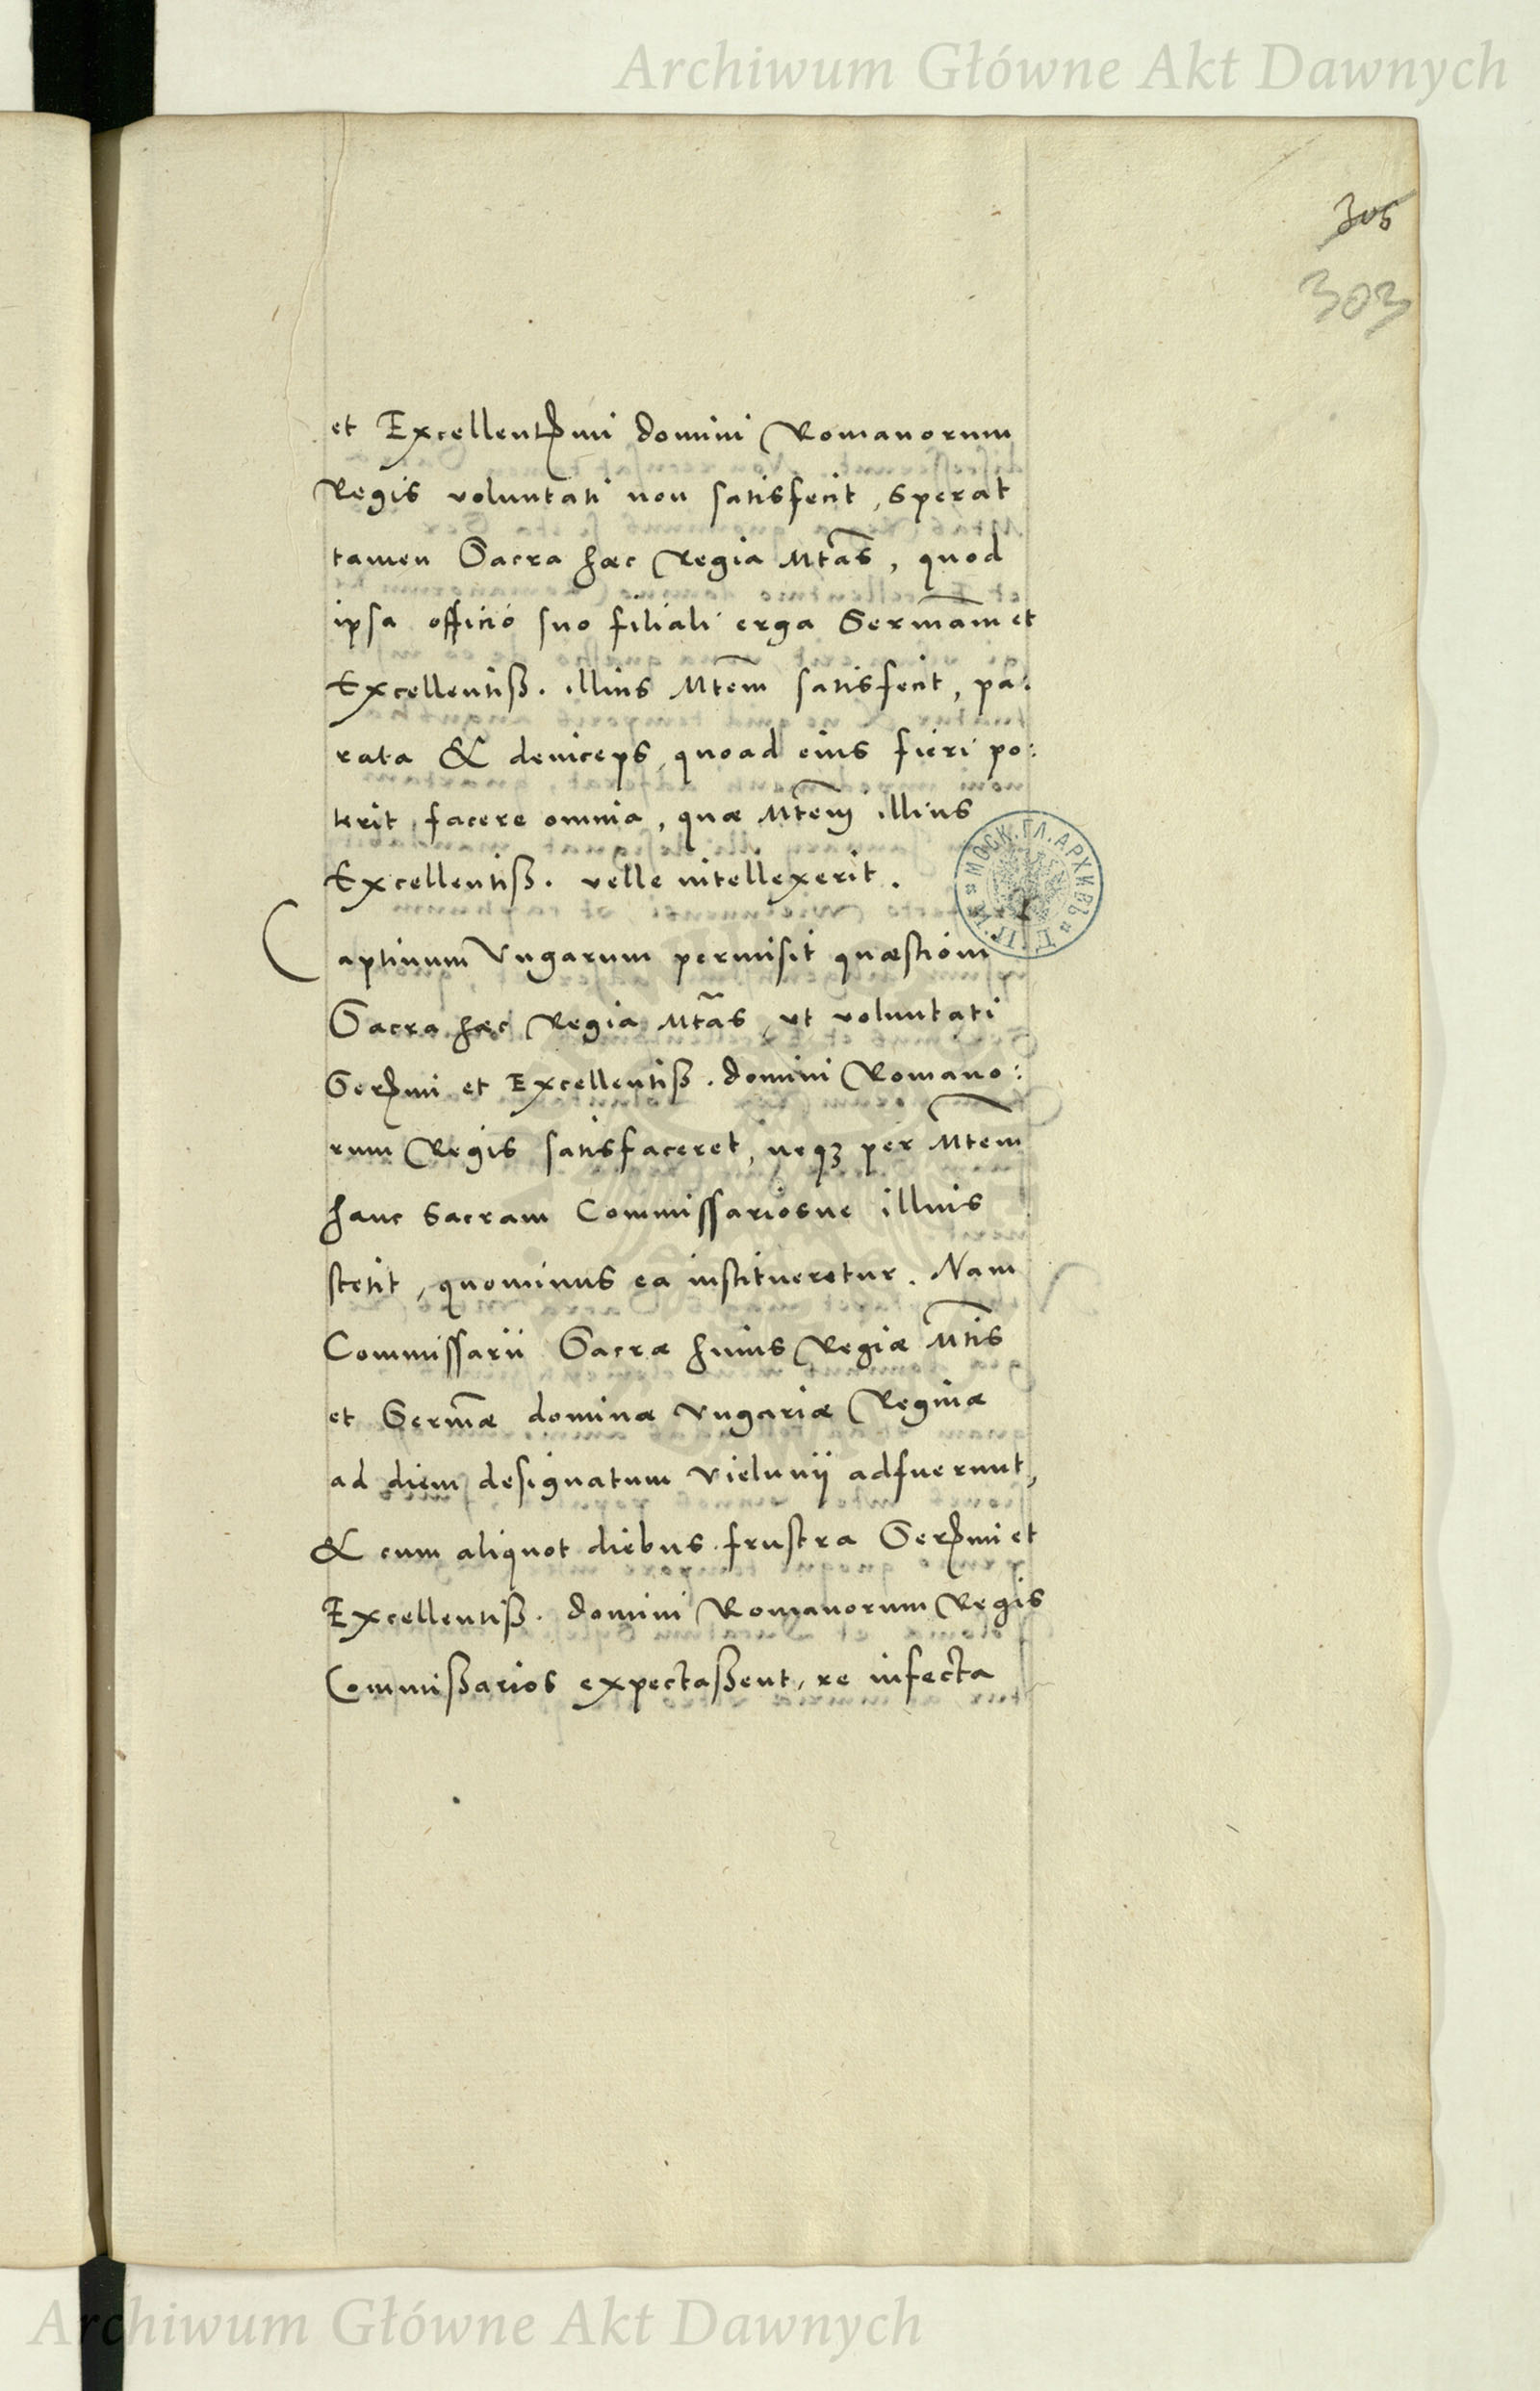 Archiwum Główne Akt Dawnych
305
303
et Excellentssmi domini Romanorum
Regis voluntati non satisfecit, sperat
tamen Sacra haec Regia Mtas, quod
ipsa officio suo filiali erga Sermam et
Excellentiss. illius Mtem satisfecit, pa:
rata & deinceps, quoad eius fieri po:
terit, facere omnia, quae Mtem illius
Excellentiss. velle intellexerit.
Captivum Vngarum permisit quaestioni
Sacra haec Regia Mtas, ut voluntati
Serssmi et Excellentiss. domini Romano:
rum Regis satisfaceret, neq3 per Mtem
hanc Sacram Commissariosue illius
stetit, quominus ea institueretur. Nam
Commissarii Sacrae huius Regiae Mtis
et Sermae dominae Vngariae Reginae
ad diem designatum Vielunij adfuerunt,
& cum aliquot diebus frustra Serssmi et
Excellentiss. domini Romanorum Regis
Commissarios expectassent, re infecta
МОСК. ГЛ. АРХИВЪ
Archiwum Główne Akt Dawnych